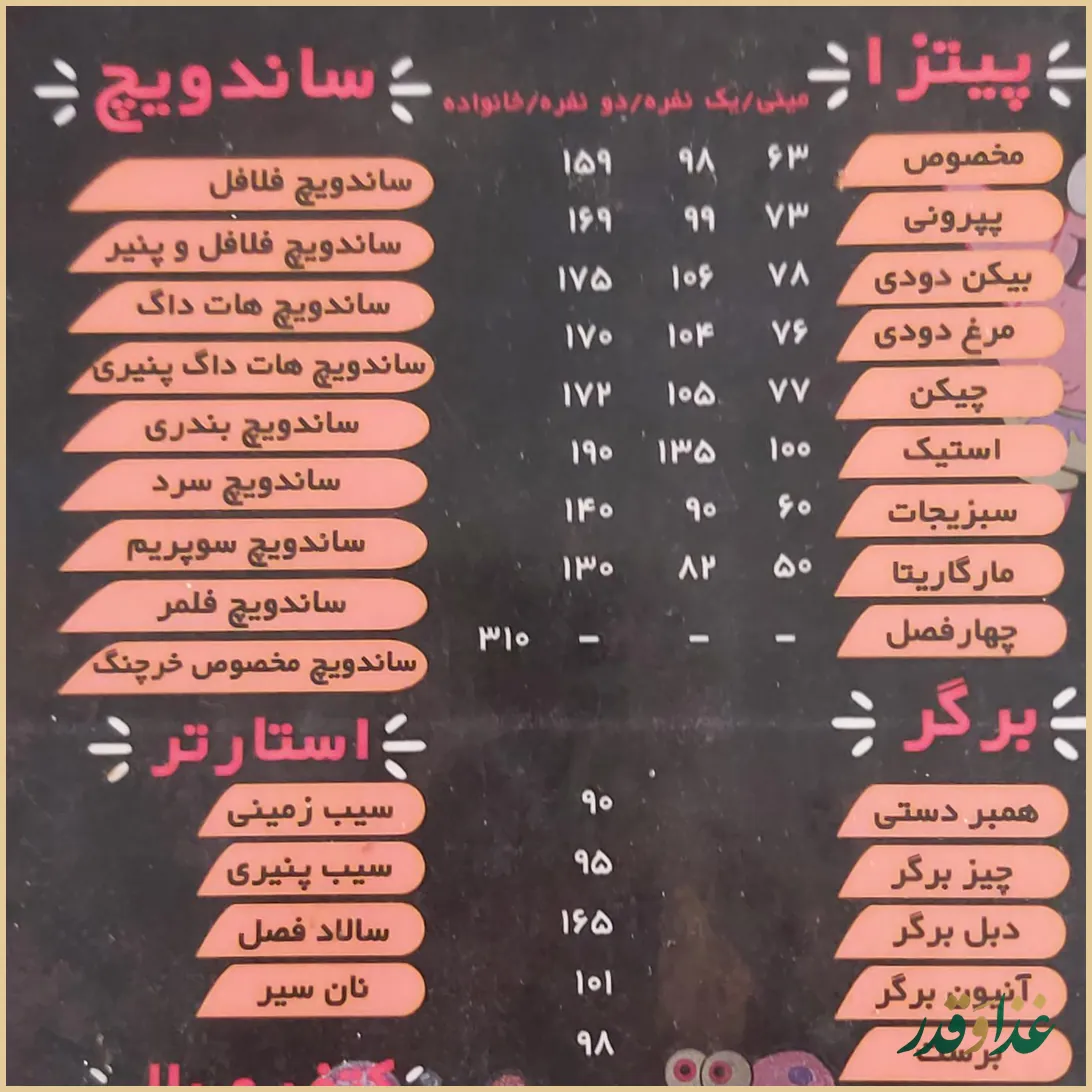 پیتزا
مینی/یک نفره/دو نفره/خانواده
مخصوص ۶۳ ۹۸ ۱۵۹
پپرونی ۷۳ ۹۹ ۱۶۹
بیکن دودی ۷۸ ۱۰۶ ۱۷۵
مرغ دودی ۷۶ ۱۰۴ ۱۷۰
چیکن ۷۷ ۱۰۵ ۱۷۲
استیک ۱۰۰ ۱۳۵ ۱۹۰
سبزیجات ۶۰ ۹۰ ۱۴۰
مارگاریتا ۵۰ ۸۲ ۱۳۰
چهار فصل - - - ۳۱۰
برگر
همبر دستی ۹۰
چیز برگر ۹۵
دبل برگر ۱۶۵
آنیون برگر ۱۰۱
۹۸
ساندویچ
ساندویچ فلافل
ساندویچ فلافل و پنیر
ساندویچ هات داگ
ساندویچ هات داگ پنیری
ساندویچ بندری
ساندویچ سرد
ساندویچ سوپریم
ساندویچ فلمر
ساندویچ مخصوص خرچنگ
استارتر
سیب زمینی
سیب پنیری
سالاد فصل
نان سیر
غذا و قدر